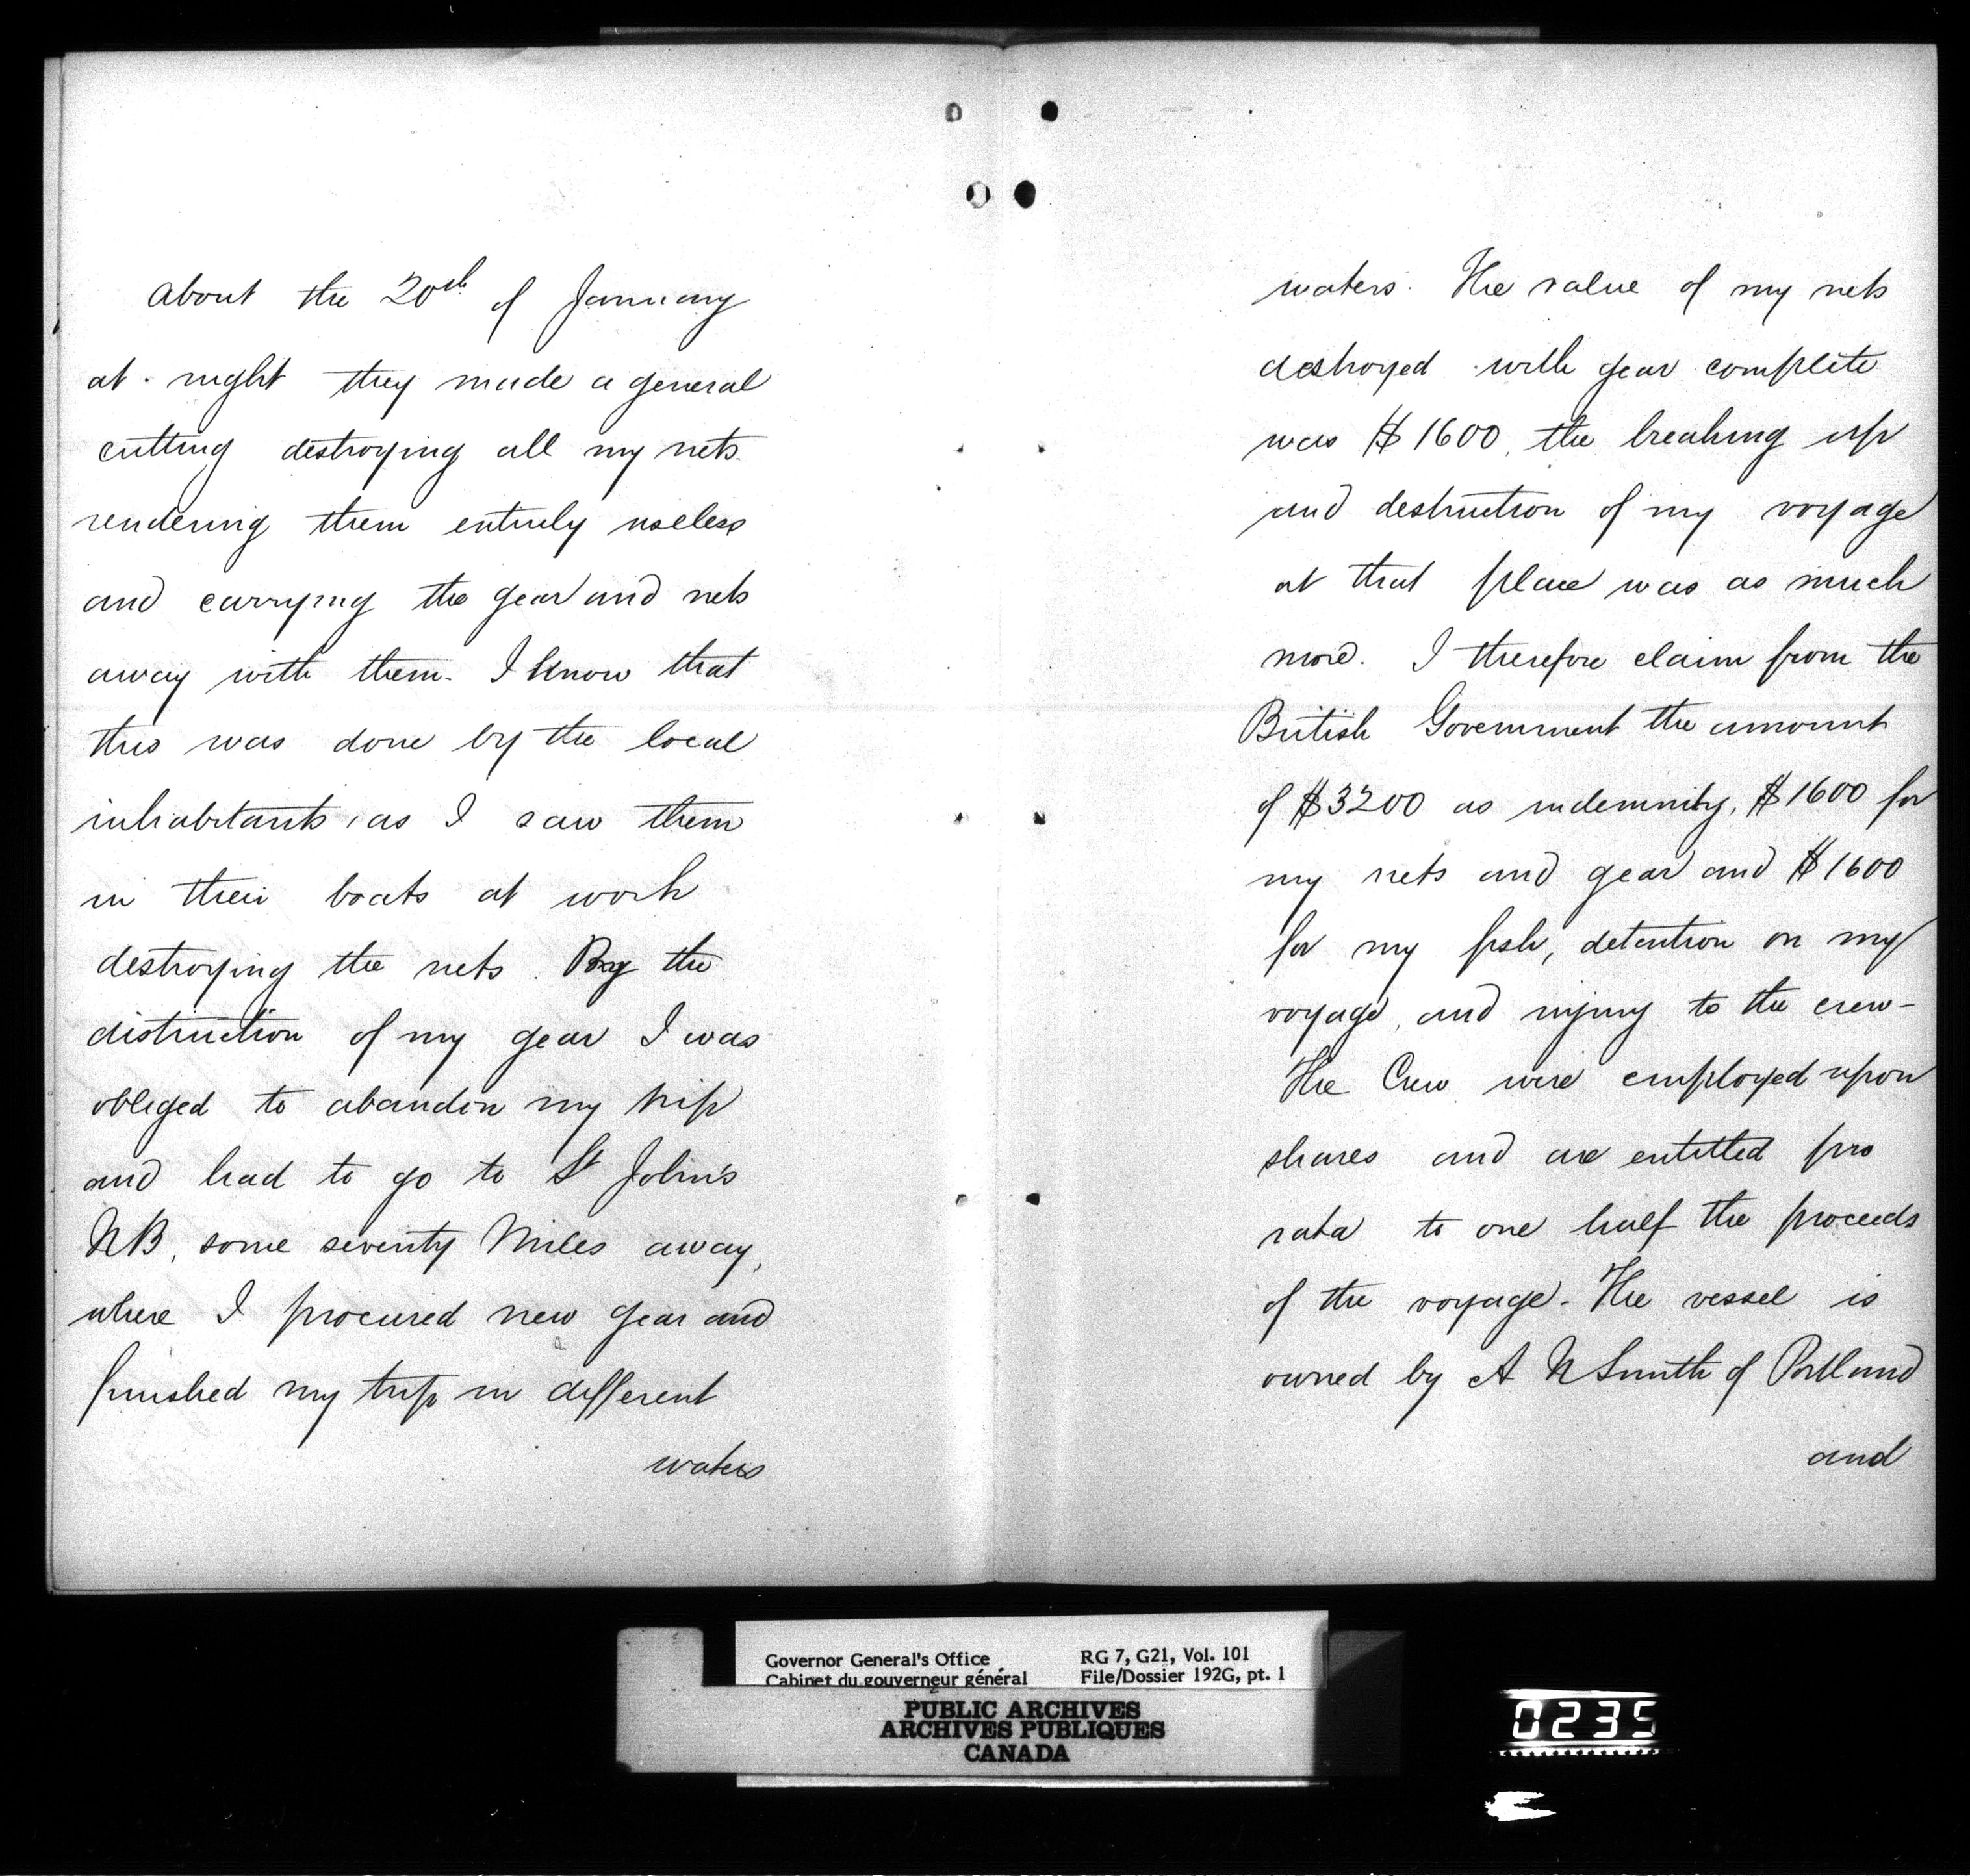 About the 20th of January
at night they made a general
cutting destroying all my nets
rendering them entirely useless
and carrying the gear and nets
away with them. I know that
this was done by the local
inhabitants, as I saw them
in their boats at work
destroying the nets. By the
distruction of my gear I was
obliged to abandon my trip
and had to go to St John's
NB, some seventy Miles away,
where I procured new gear and
finished my trip in different
waters
waters. The value of my nets
destroyed with gear complete
was $1600, the breaking up
and destruction of my voyage
at that place was as much
more. I therefore claim from the
British Government the amount
of $3200 as indemnity, $1600 for
my nets and gear and $1600
for my fish, detention on my
voyage, and injury to the crew-
The Crew were employed upon
shares and are entitled pro
rata to one half the proceeds
of the voyage. The vessel is
owned by A N Smith of Portland
and
Governor General's Office RG 7, G21, Vol. 101
Cabinet du gouverneur général File/Dossier 192G, pt. 1
PUBLIC ARCHIVES
ARCHIVES PUBLIQUES
CANADA
0235